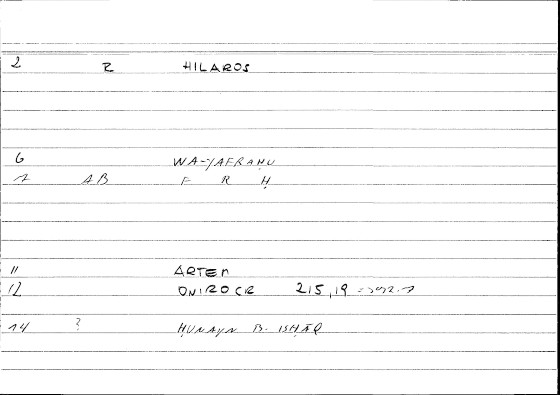 2 R HILAROS
6 WA-YAFRAḤU
7 AB F R Ḥ
11 ARTEM
12 ONIROCR 215,19
14 ? ḤUNAYN B- ISḤĀQ